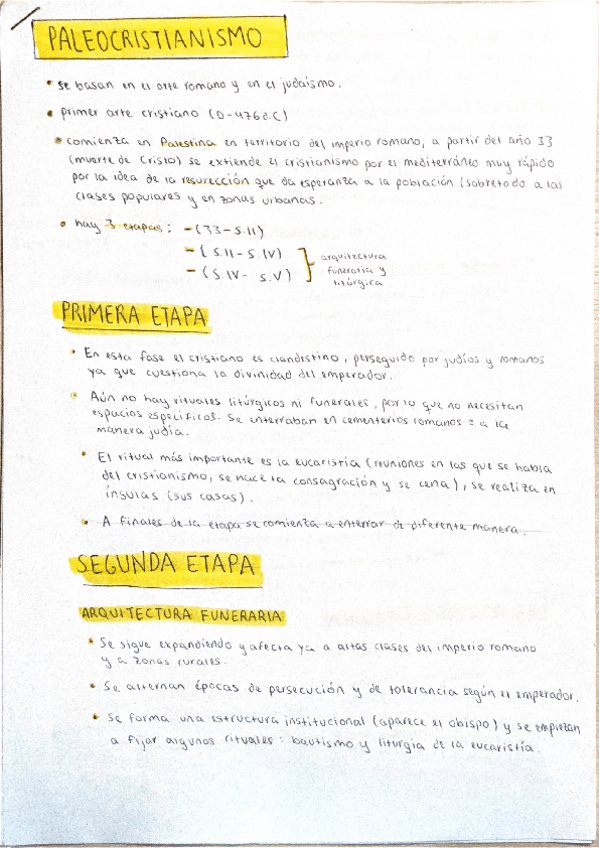 PALEOCRISTIANISMO
• se basan en el arte romano y en el judaísmo.
• primer arte cristiano (0-476d.C)
• comienza en Palestina en territorio del imperio romano, a partir del año 33
(muerte de Cristo) se extiende el cristianismo por el mediterráneo muy rápido
por la idea de la resurección que da esperanza a la población (sobretodo a las
clases populares y en zonas urbanas.
• hay 3 etapas: - (33-S.II)
- (S.II-S.IV)
- (S.IV- S.V)
arquitectura
funeraria y
litúrgica
PRIMERA ETAPA
• En esta fase el cristiano es clandestino, perseguido por judíos y romanos
ya que cuestiona la divinidad del emperador.
• Aún no hay rituales litúrgicos ni funerales, por lo que no necesitan
espacios específicos. Se enterraban en cementerios romanos = a la
manera judía.
• El ritual más importante es la eucaristía (reuniones en las que se habla
del cristianismo, se hace la consagración y se cena), se realiza en
ínsulas (sus casas).
• A finales de la etapa se comienza a enterrar de diferente manera.
SEGUNDA ETAPA
ARQUITECTURA FUNERARIA
• Se sigue expandiendo y afecta ya a altas clases del imperio romano
y a zonas rurales.
• Se alternan épocas de persecución y de tolerancia según el emperador.
• Se forma una estructura institucional (aparece el obispo) y se empiezan
a fijar algunos rituales: bautismo y liturgia de la eucaristía.